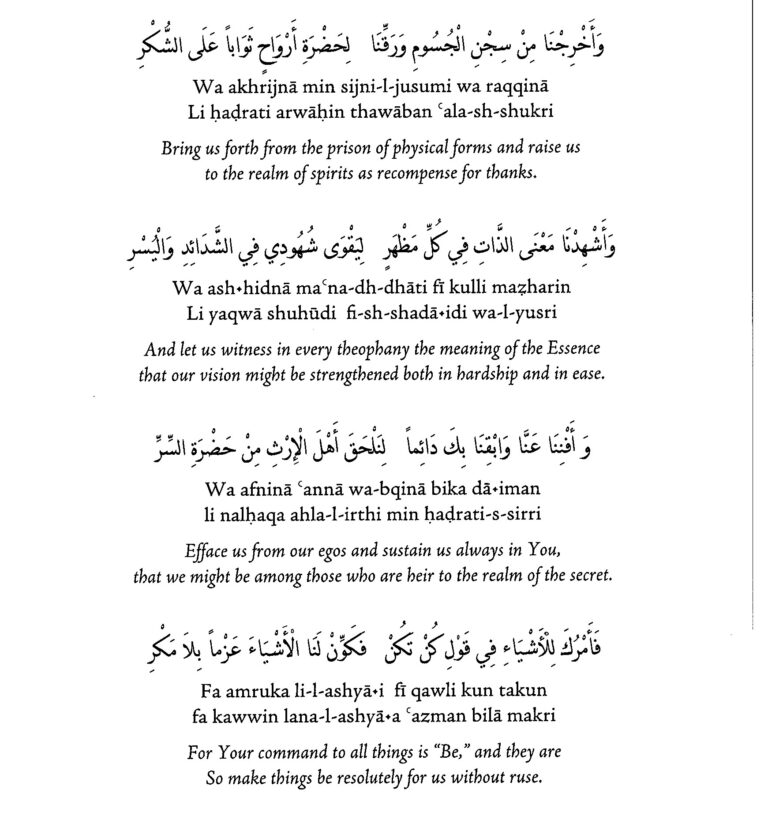 وَأَخْرِجْنَا مِنْ سِجْنِ الْجُسُومِ وَرَقِّنَا لِحَضْرَةِ أَرْوَاحٍ ثَوَاباً عَلَى الشُّكْرِ
Wa akhrijnā min sijni-l-jusumi wa raqqinā
Li ḥaḍrati arwāḥin thawāban ʿala-sh-shukri
Bring us forth from the prison of physical forms and raise us
to the realm of spirits as recompense for thanks.
وَأَشْهِدْنَا مَعْنَى الذَّاتِ فِي كُلِّ مَظْهَرٍ لِيَقْوَى شُهُودِي فِي الشَّدَائِدِ وَالْيُسْرِ
Wa ash•hidnā maʿna-dh-dhāti fī kulli maẓharin
Li yaqwā shuhūdi fi-sh-shadā•idi wa-l-yusri
And let us witness in every theophany the meaning of the Essence
that our vision might be strengthened both in hardship and in ease.
وَ أَفْنِنَا عَنَّا وَابْقِنَا بِكَ دَائِماً لِنَلْحَقَ أَهْلَ الْإِرْثِ مِنْ حَضْرَةِ السِّرِّ
Wa afninā ʿannā wa-bqinā bika dā•iman
li nalḥaqa ahla-l-irthi min ḥaḍrati-s-sirri
Efface us from our egos and sustain us always in You,
that we might be among those who are heir to the realm of the secret.
فَأَمْرُكَ لِلْأَشْيَاءِ فِي قَوْلِ كُنْ تَكُنْ فَكَوِّنْ لَنَا الْأَشْيَاءَ عَزْماً بِلاَ مَكْرِ
Fa amruka li-l-ashyā•i fī qawli kun takun
fa kawwin lana-l-ashyā•a ʿazman bilā makri
For Your command to all things is “Be,” and they are
So make things be resolutely for us without ruse.